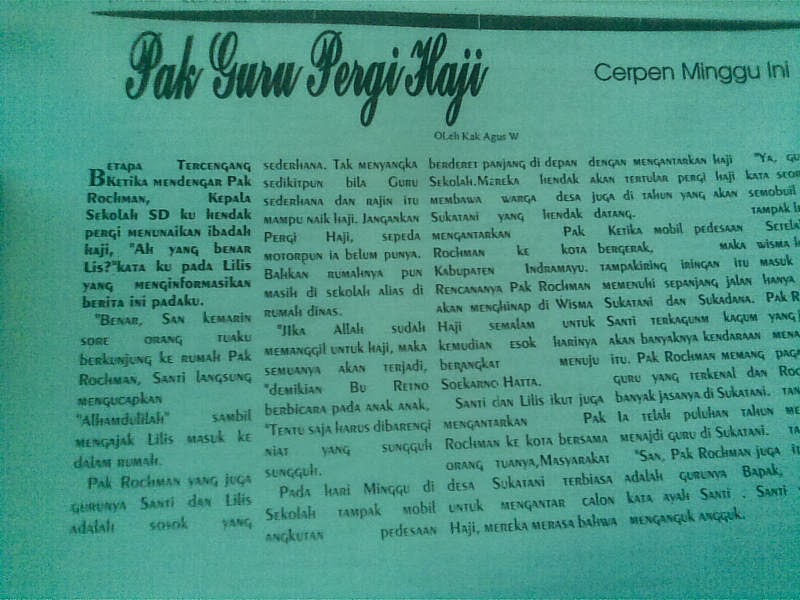 Pak Guru Pergi Haji
Cerpen Minggu Ini
OLeh Kak Agus W
Betapa Tercengang
Ketika mendengar Pak
Rochman, Kepala
Sekolah SD ku hendak
pergi menunaikan ibadah
haji, "Ah yang benar
Lis?"kata ku pada Lilis
yang menginformasikan
berita ini padaku.
"Benar, San kemarin
sore orang tuaku
berkunjung ke rumah Pak
Rochman, Santi langsung
mengucapkan
"Alhamdulilah" sambil
mengajak Lilis masuk ke
dalam rumah.
Pak Rochman yang juga
gurunya Santi dan Lilis
adalah sosok yang
sederhana. Tak menyangka
sedikitpun bila Guru
sederhana dan rajin itu
mampu naik haji. Jangankan
Pergi Haji, sepeda
motorpun ia belum punya.
Bahkan rumahnya pun
masih di sekolah alias di
rumah dinas.
"Jika Allah sudah
memanggil untuk haji, maka
semuanya akan terjadi,
"demikian Bu Retno
berbicara pada anak anak,
"Tentu saja harus dibarengi
niat yang sungguh
sungguh.
Pada hari Minggu di
Sekolah tampak mobil
angkutan pedesaan
berderet panjang di depan
Sekolah.Mereka hendak
membawa warga desa
Sukatani yang hendak
mengantarkan Pak
Rochman ke kota
Kabupaten Indramayu.
Rencananya Pak Rochman
akan menghinap di Wisma
Haji semalam untuk
kemudian esok harinya
berangkat menuju
Soekarno Hatta.
Santi dan Lilis ikut juga
mengantarkan Pak
Rochman ke kota bersama
orang tuanya,Masyarakat
desa Sukatani terbiasa
untuk mengantar calon
Haji, mereka merasa bahwa
dengan mengantarkan haji
akan tertular pergi haji
juga di tahun yang akan
datang.
Ketika mobil pedesaan
bergerak, maka
tampakiring iringan itu
memenuhi sepanjang jalan
Sukatani dan Sukadana.
Santi terkagunm kagum
akan banyaknya kendaraan
itu. Pak Rochman memang
guru yang terkenal dan
banyak jasanya di Sukatani.
Ia telah puluhan tahun
menajdi guru di Sukatani.
"San, Pak Rochman juga
adalah gurunya Bapak,
kata ayah Santi . Santi
menganguk angguk.
"Ya,
kata
semobil
tampak
wisma
masuk
hanya
Pak
yang